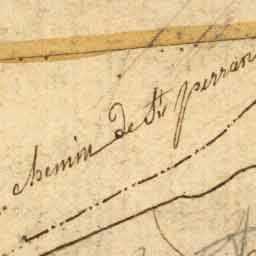 chemin de St perran